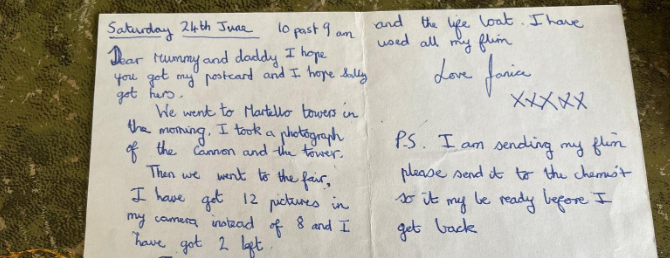 Saturday 24th June 10 past 9 am
Dear Mummy and daddy I hope
you got my postcard and I hope Sally
got hers.
We went to Martello towers in
the morning. I took a photograph
of the Cannon and the tower.
Then we went to the fair,
I have got 12 pictures in
my camera instead of 8 and I
have got 2 left.
and the life boat. I have
used all my flim
Love Janice
XXXXX
P.S. I am sending my flim
please send it to the chemist
so it my be ready before I
get back